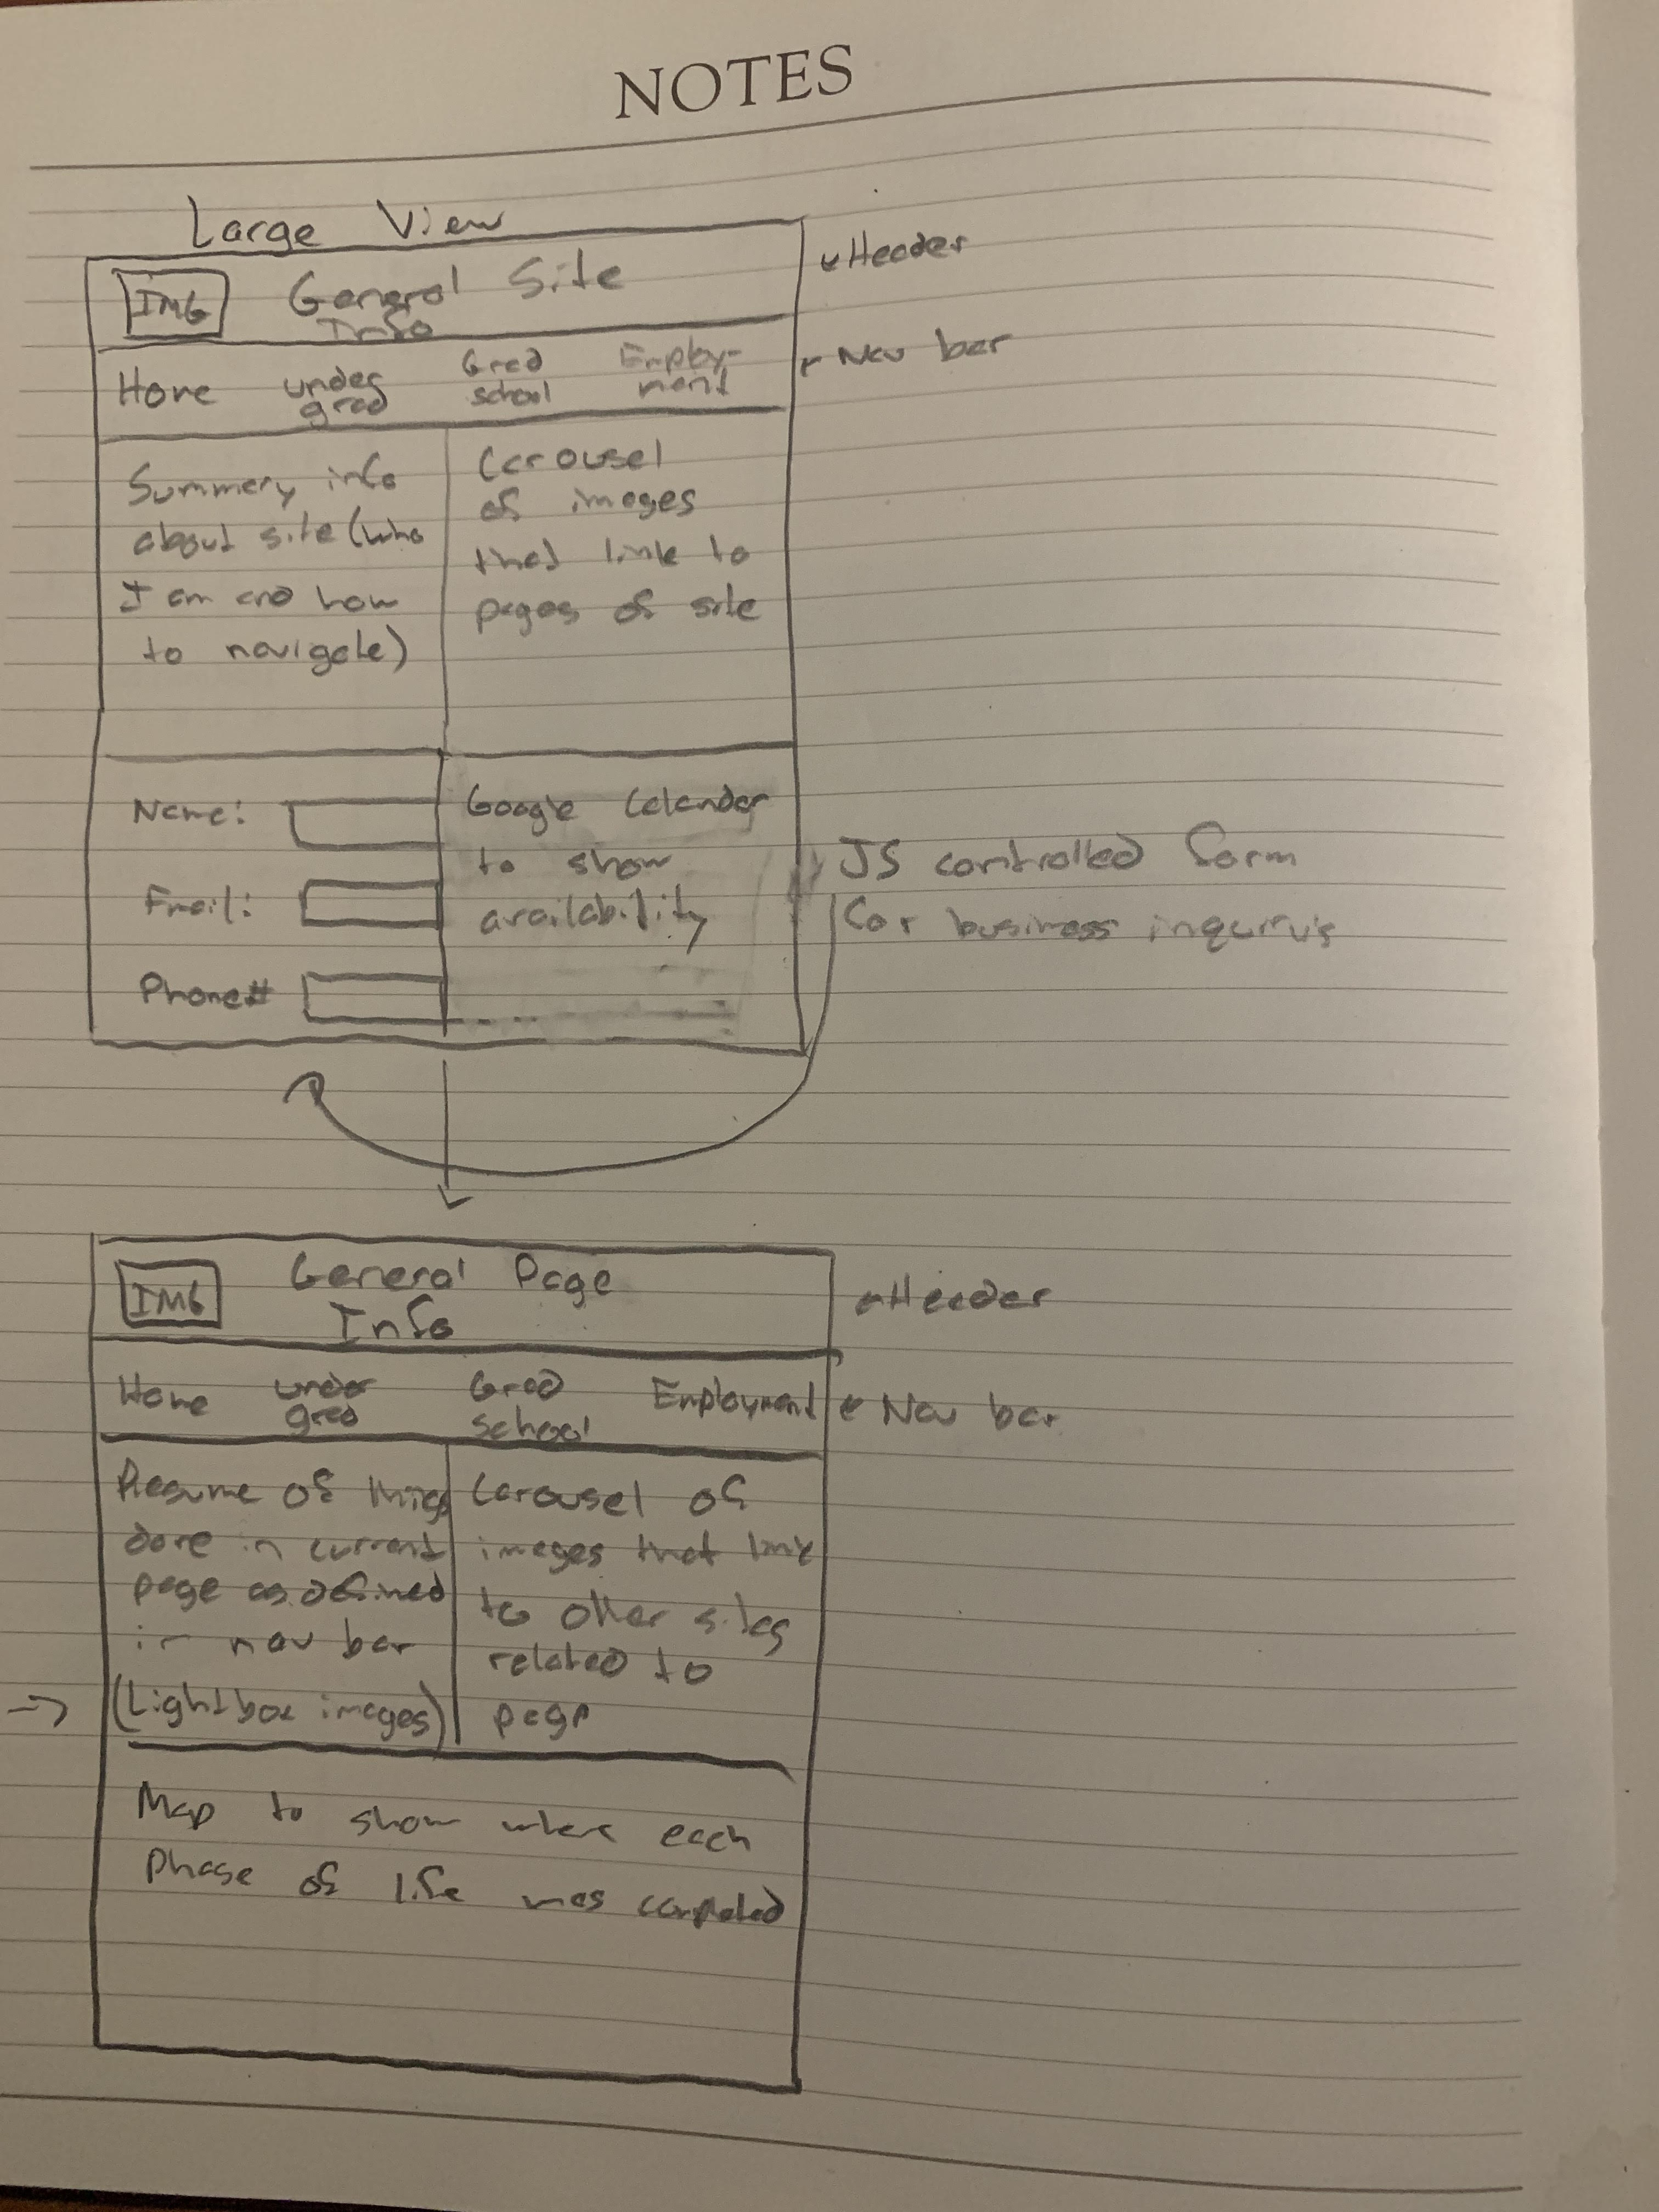 NOTES
Large View
IMG
General Site
Info
Header
Home
under
grad
Grad
school
Employ-
ment
Nav bar
Summary info
about site (who
I am and how
to navigate)
Carousel
of images
that link to
pages of site
Name:
Email:
Phone#
Google Calander
to show
availability
JS controlled form
for business
IMG
General Page
Info
Header
Home
under
grad
Grad
school
Employment
Nav bar
Resume of things
done in current
page as defined
in nav bar
(Lightbox images)
Carousel of
images that link
to other sites
related to
page
Map to show where each
Phase of life was completed